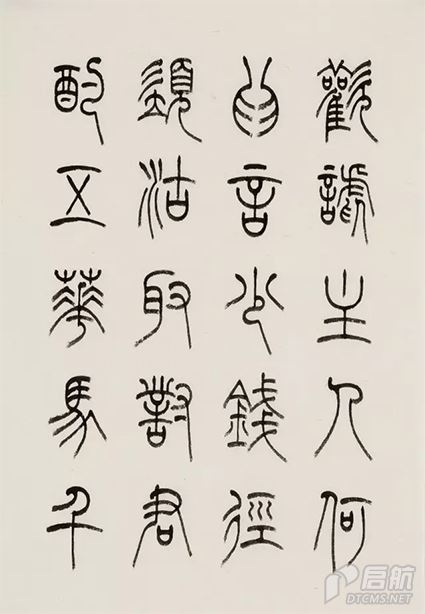 歡謔主人何
為言少錢徑
須沽取對君
酌五華馬千
启航
DTCMS.NET